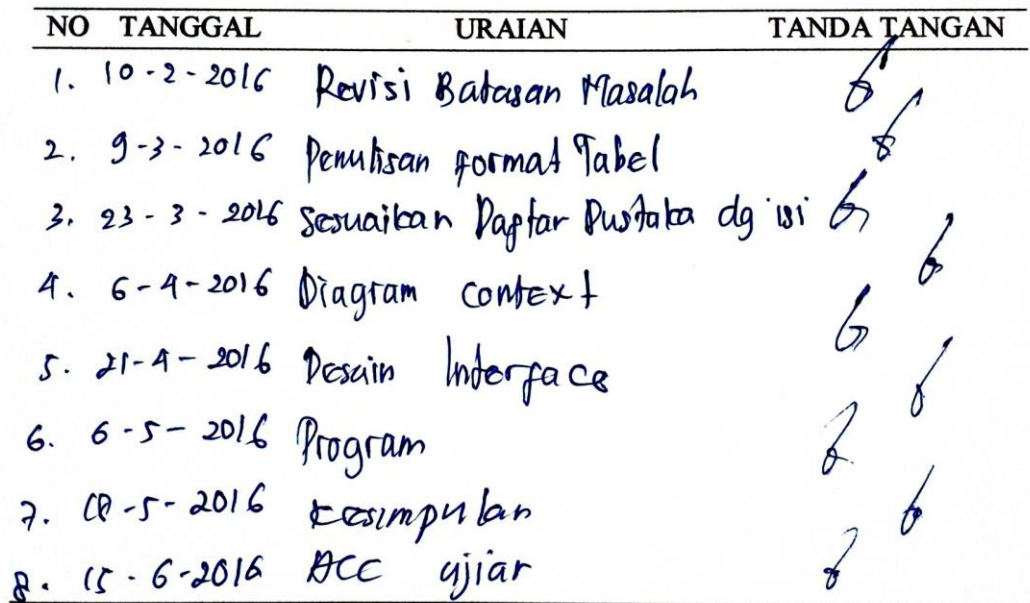 NO TANGGAL URAIAN TANDA TANGAN
1. 10-2-2016 Revisi Batasan Masalah
2. 9-3-2016 Penulisan Format Tabel
3. 23-3-2016 Sesuaikan Daftar Pustaka dg isi
4. 6-4-2016 Diagram context
5. 21-4-2016 Desain Interface
6. 6-5-2016 Program
7. 18-5-2016 Kesimpulan
8. 15-6-2016 ACC ujian